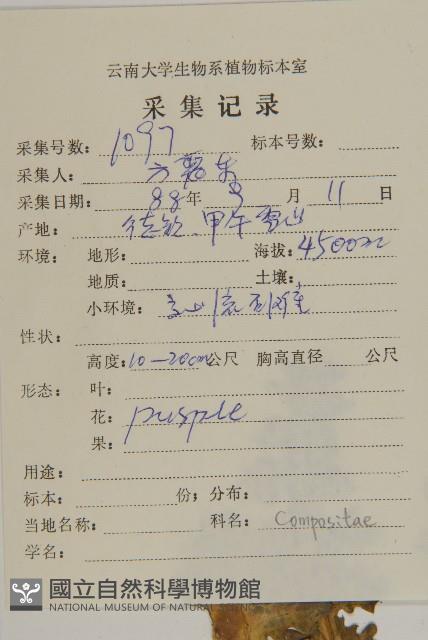 云南大学生物系植物标本室
采集记录
采集号数：1097 标本号数：
采集人：方震东
采集日期：88年9月11日
产地：德钦、甲午雪山
环境：地形：海拔：4500m
地质：土壤：
小环境：高山流石滩
性状：
高度：10—20cm公尺 胸高直径 公尺
形态：叶：
花：purple
果：
用途：
标本：份；分布：
当地名称：科名：Compositae
学名：
國立自然科學博物館
NATIONAL MUSEUM OF NATURAL SCIENCE